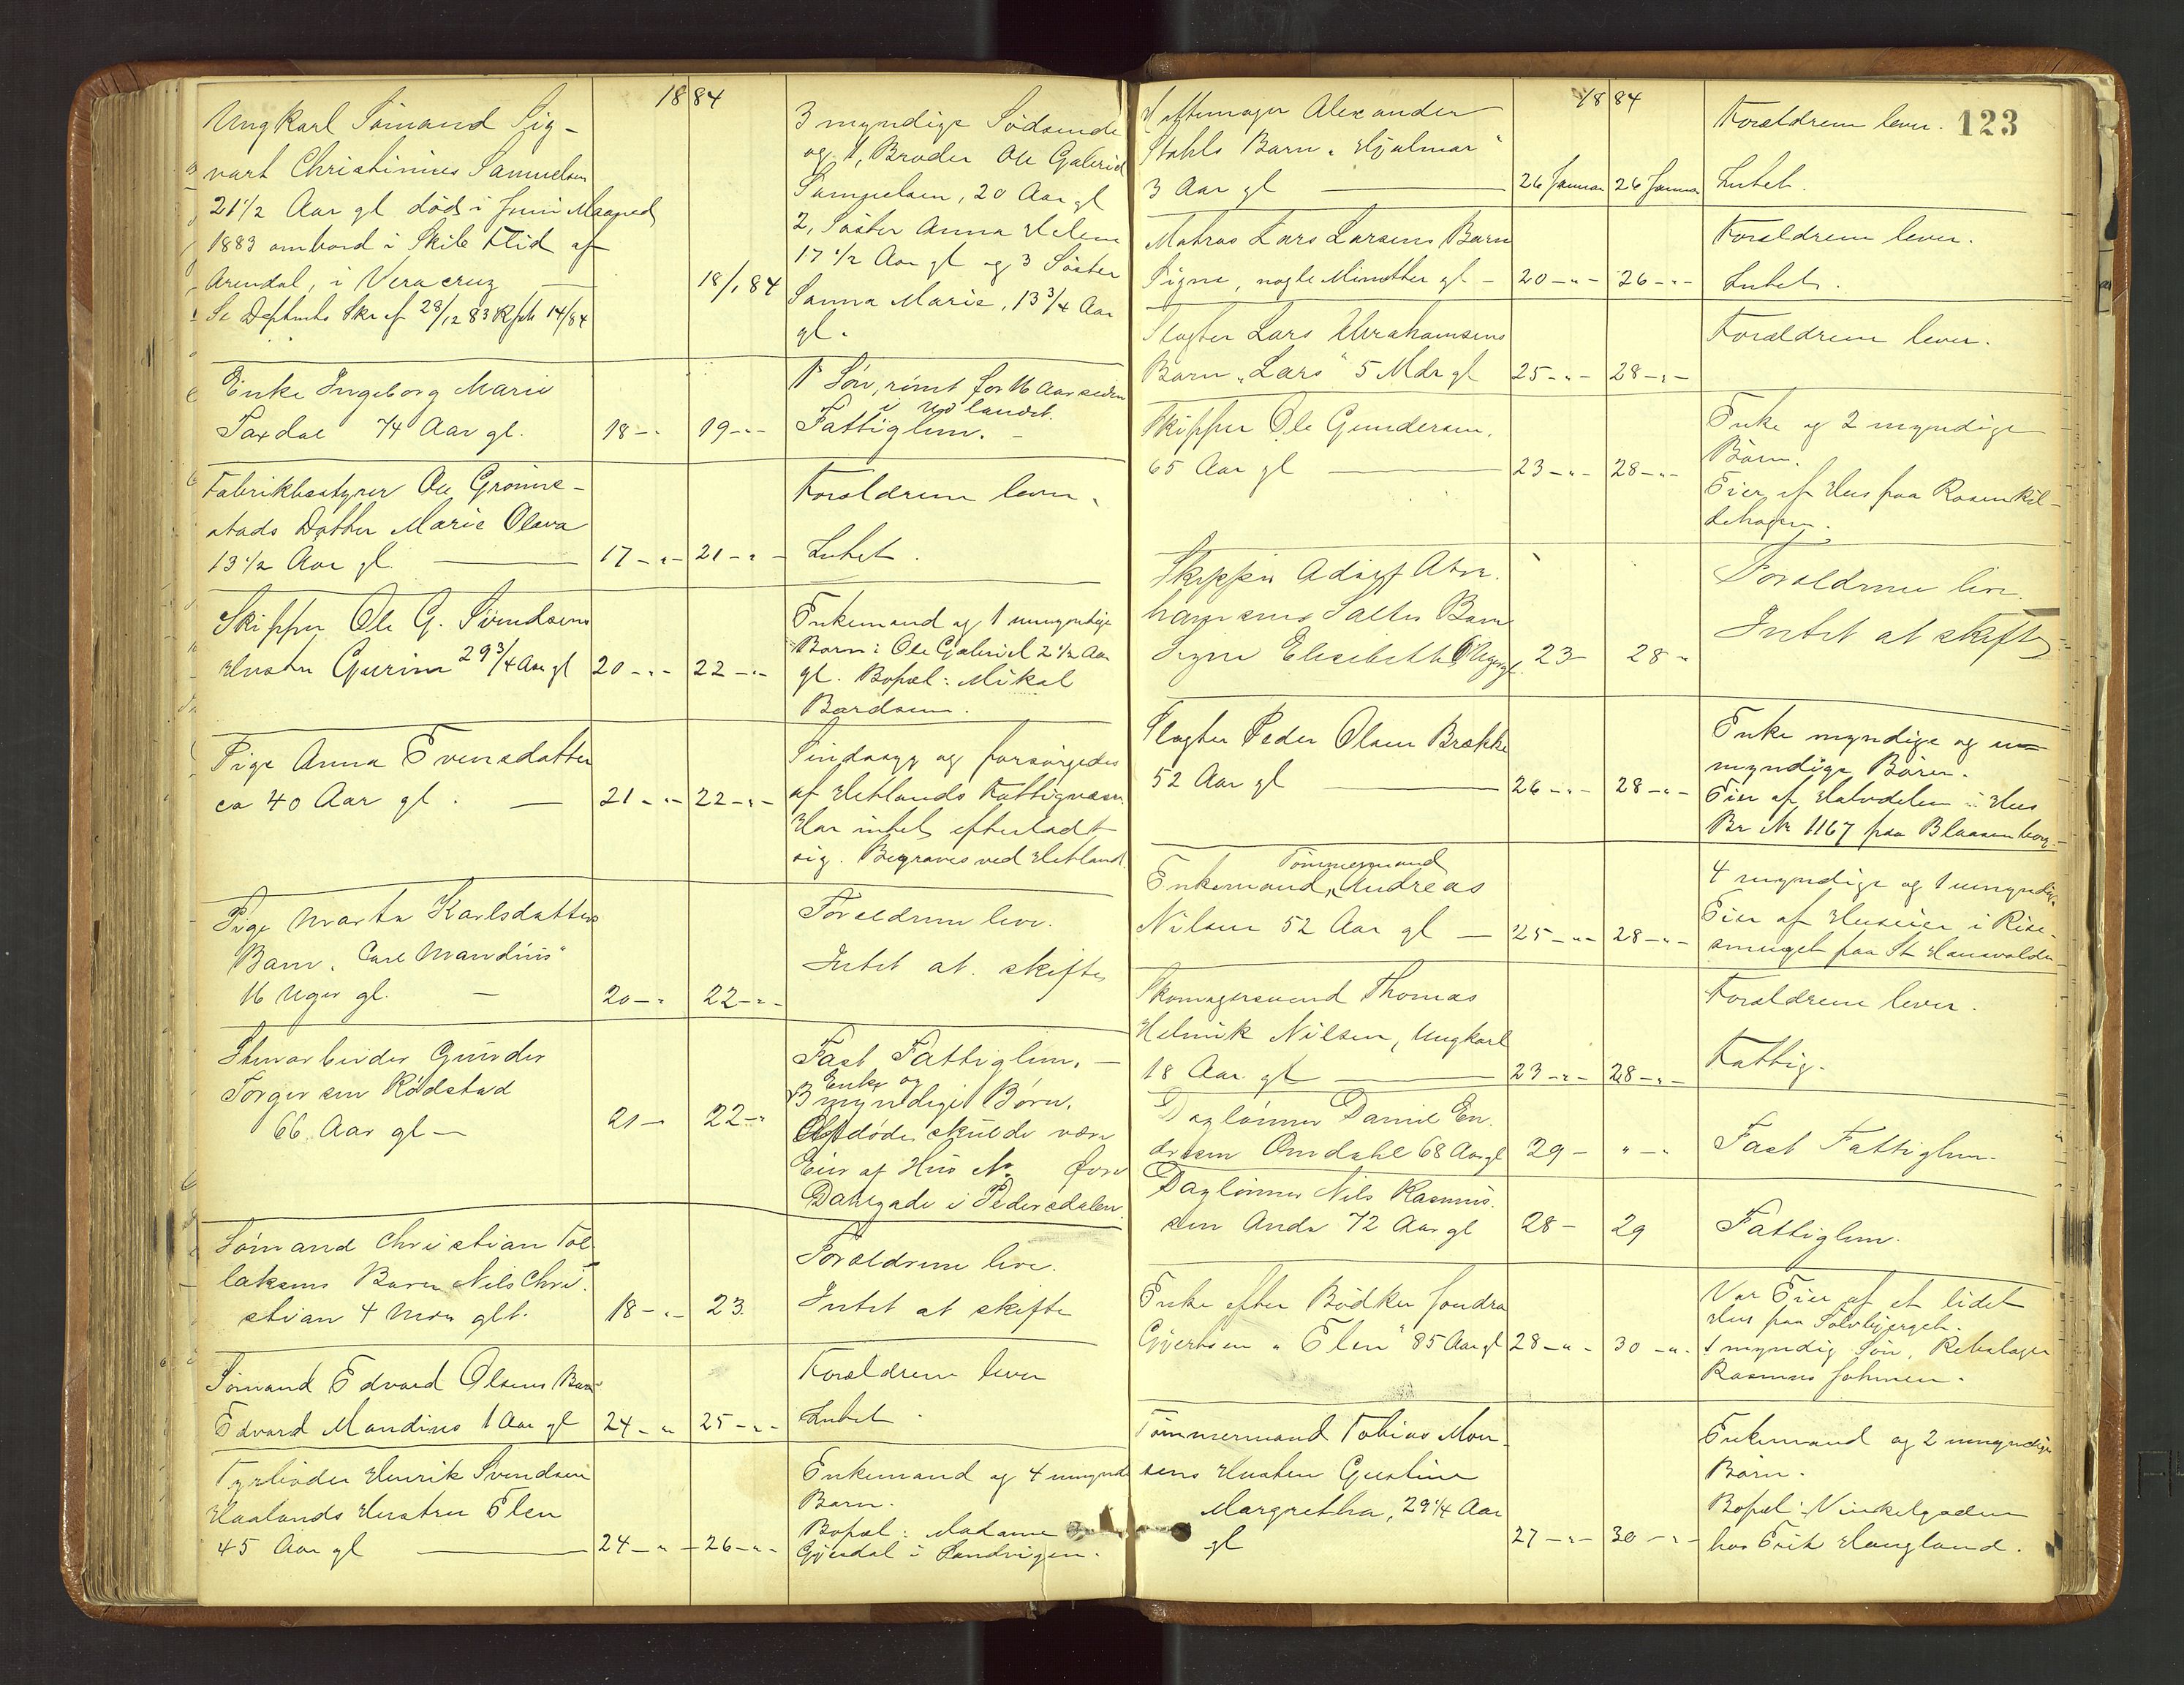 1884
Ungkarl Sömand Sig-
vart Christinius Samuelsen
21 1/2 Aar gl død i Juni Maaned
1883 ombord i Skib Flid af
Arendal, i Vera cruz
Se Depthmts Skr af 28/12 83 Rfth 14/84
18/1 84
3 myndige Södskende
og 1, Broder Ole Gabriel
Samuelsen, 20 Aar gl
2, Söster Anna Helene
17 1/2 Aar gl og 3 Söster
Sanna Marie, 13 3/4 Aar
gl.
Enke Ingeborg Marie
Taxdal 74 Aar gl. 18-" 19-"-
1 Sön, römt for 16 Aar siden
i Udlandet.
Fattiglem. -
Fabrikbestyrer Ole Grönne-
stads Datter Marie Olava
13 1/2 Aar gl. 17-"- 21-"-
Forældrene lever.
Intet.
Skipper Ole G. Svendsens
Hustru Gurine 29 3/4 Aar gl 20-"- 22-"-
Enkemand og 1 umyndige
Barn: Ole Gabriel 2 1/2 Aar
gl. Bopæl: Mikal
Bardsen.
Pige Anna Svensdatter
ca 40 Aar gl. 21-"- 22-"-
Sindssyg og forsørgedes
af Hetlands Fattigvæsen.
Har intet efterladt
sig. Begraves ved Hetland
Pige Marta Karlsdatters
Barn. "Carl Mandius"
16 Uger gl. - 20-" 22-"-
Forældrene leve.
Intet at skifte
Stenarbeider Gunder
Torgersen Rødstad
66 Aar gl- 21- 22-"
Fast Fattiglem. -
Enke og
3 myndige Børn.
Afdøde skulde være
Eier af Hus No Øvre
Dalgade i Pedersdalen.
Sömand Christian Tol-
laksens Barn Nils Chri-
stian 4 Mdr glt. 18-"- 23
Forældrene leve.
Intet at skifte
Sömand Edvard Olsens Barn
Edvard Mandius 1 Aar gl 24-"- 25-"-
Forældrene lever
Intet.
Fyrböder Henrik Svendsen
Haalands Hustru Elen
45 Aar gl 24-"- 26-"-
Enkemand og 4 umynd
Barn.
Bopæl: Madame
Gjesdal i Sandvigen.
123
1884
Heftemager Alexander
Stahls Barn "Hjalmar"
3 Aar gl 26 Januar 26 Januar
Forældrene lever.
Intet.
Matros Lars Larsens Barn
Signe, nogle Minutter gl - 20-"- 26-"-
Forældrene lever.
Intet.
Slagter Lars Abrahamsens
Barn "Lars" 5 Mdr gl 25-"- 28-"-
Forældrene lever.
Skipper Ole Gundersen.
65 Aar gl 23-"- 28-"-
Enke og 2 myndige
Börn.
Eier af Hus paa Rosenkil-
dehagen.
Skipper Adolf Abra-
hamsens Salter Barn
Signe Elisabeth 6 Uger gl. 23- 28-
Forældrene leve.
Intet at skifte
Slagter Peder Olsen Brekke
52 Aar gl 26-"- 28-"-
Enke myndige og u-
myndige Börn.
Eier af Halvdelen i Hus
Br No 1167 paa Blaasenborg.
Tömmermand
Enkemand, Andreas
Nilsen 52 Aar gl - 25-"- 28-"-
4 myndige og 1 umyndige
Eier af Huseier i Rise-
smuget paa St Hansvolden
Skomagersvend Thomas
Helmik Nilsen, Ungkarl
18 Aar gl 23-"- 28-"-
Forældrene lever.
Fattig.
Daglönner Daniel En-
dresen Omdahl 68 Aar gl 29- "-"
Fast Fattiglem.
Daglönner Nils Rasmus-
sen Anda 72 Aar gl 28- 29
Fattiglem.
Enke efter Bödker Jondra
Gjertsen "Elen" 85 Aar gl 28-"- 30-"-
Var Eier af et lidet
Hus paa Sölvbjerget.
1 myndig Sön, Rebslager
Rasmus Johnsen.
Tömmermand Tobias Mon-
sens Hustru Gustine
Margretha, 29 1/4 Aar
gl 27-"- 30-"-
Enkemand og 2 umyndige
Börn.
Bopæl: Vinkelgaden
hos Erik Haugland.